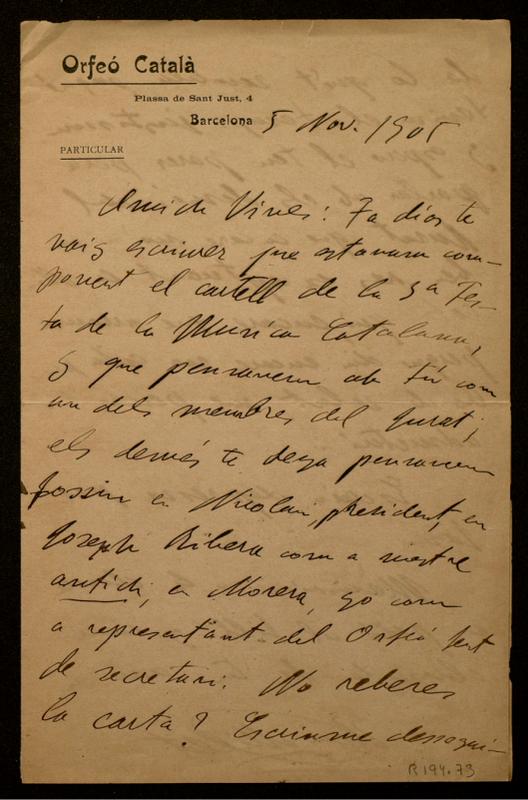 Orfeó Català
Plassa de Sant Just, 4
Barcelona 5 Nov. 1905
PARTICULAR
Amich Vives: Fa dias te
vaig escriurer que estavam com-
ponent el cartell de la 3a Fes-
ta de la Musica Catalana,
y que pensavem ab tú com
un dels membres del Jurat;
els demés te deya pensavem
fossin en Nicolau, president, en
Joseph Ribera com a mestre
antich, en Morera, yo com
a representant del Orfeó fent
de secretari. No reberes
la carta? Escriume dessegui-
R 194.73